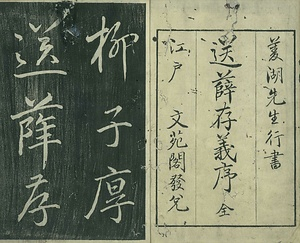 菱湖先生行書
送薛存義序 全
江戸 文苑閣發兌
柳子厚
送薛存